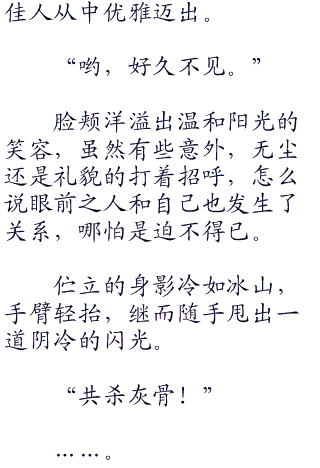 佳人从中优雅迈出。
“哟，好久不见。”
脸颊洋溢出温和阳光的
笑容，虽然有些意外，无尘
还是礼貌的打着招呼，怎么
说眼前之人和自己也发生了
关系，哪怕是迫不得已。
伫立的身影冷如冰山，
手臂轻抬，继而随手甩出一
道阴冷的闪光。
“共杀灰骨！”
……。